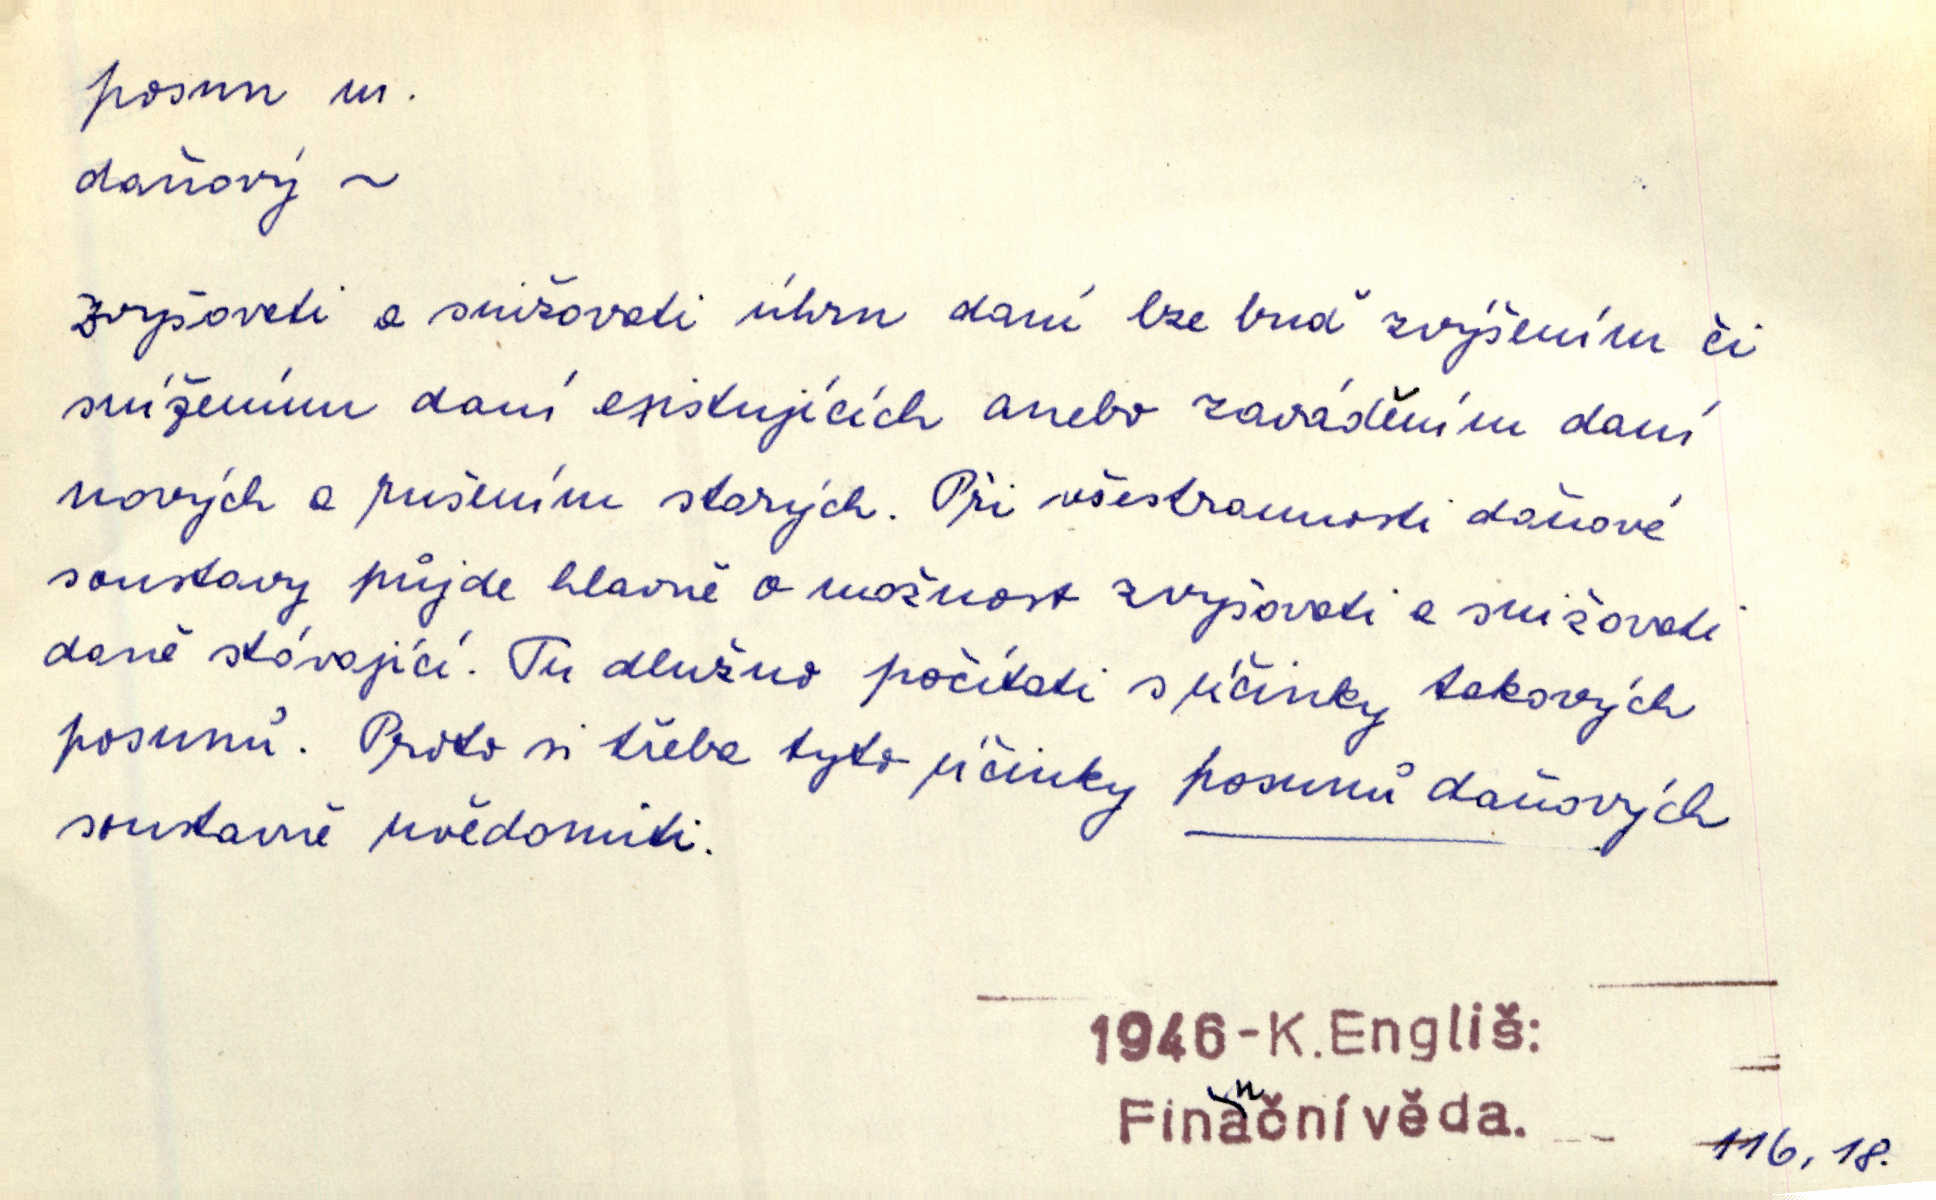 posun m.
daňový ~
zvyšovati a snižovati úhrn daní lze buď zvýšením či
snížením daní existujících anebo zaváděním daní
nových a rušením starých. Při všestrannosti daňové
soustavy půjde hlavně o možnost zvyšovati a snižovati
daně stávající. Tu dlužno počítati s účinky takových
posunů. Proto si třeba tyto účinky posunů daňových
soustavně uvědomiti.
1946-K. Engliš:
Finanční věda.
116, 18.